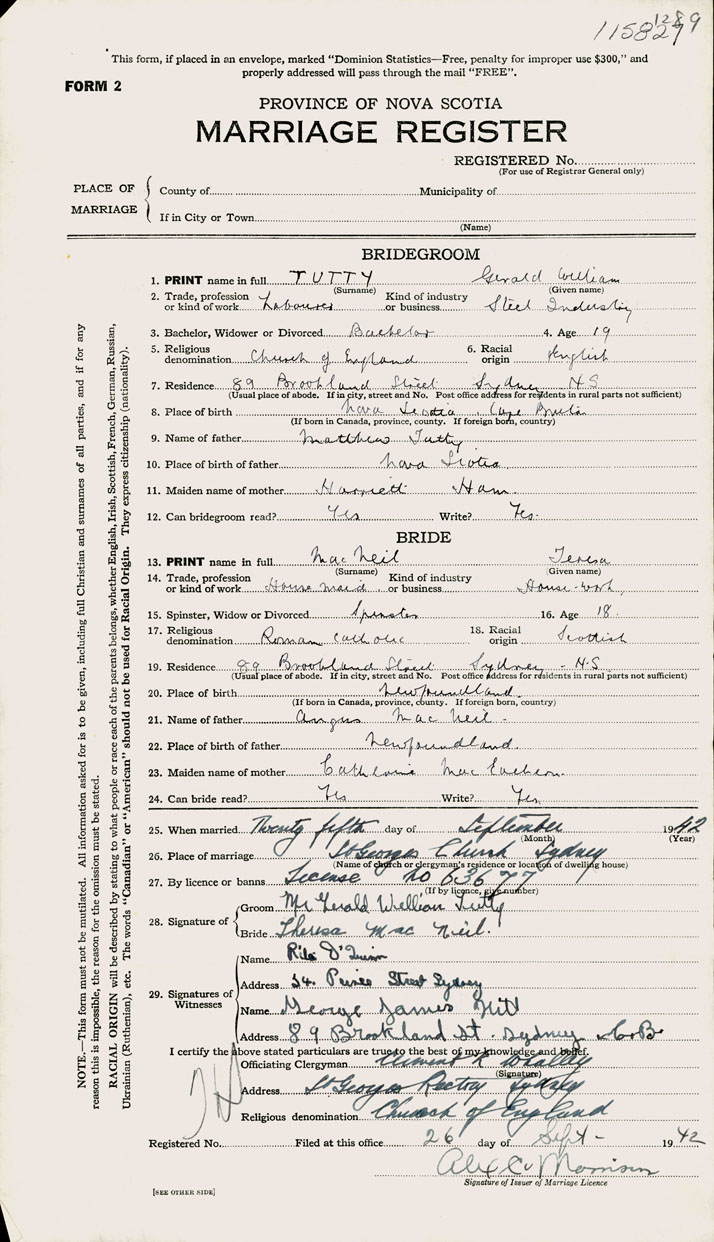 1289
115827
This form, if placed in an envelope, marked "Dominion Statistics—Free, penalty for improper use $300," and
properly addressed will pass through the mail "FREE".
FORM 2
PROVINCE OF NOVA SCOTIA
MARRIAGE REGISTER
REGISTERED No.
(For use of Registrar General only)
PLACE OF MARRIAGE
County of Municipality of
If in City or Town
(Name)
BRIDEGROOM
1. PRINT name in full TUTTY Gerald William
(Surname) (Given name)
2. Trade, profession or kind of work Labourer Kind of industry or business Steel Industry
3. Bachelor, Widower or Divorced Bachelor 4. Age 19
5. Religious denomination Church of England 6. Racial origin English
7. Residence 89 Brookland Street Sydney N.S
(Usual place of abode. If in city, street and No. Post office address for residents in rural parts not sufficient)
8. Place of birth Nova Scotia Cape Breton
(If born in Canada, province, county. If foreign born, country)
9. Name of father Matthew Tutty
10. Place of birth of father Nova Scotia
11. Maiden name of mother Harriett Ham
12. Can bridegroom read? Yes Write? Yes.
BRIDE
13. PRINT name in full MacNeil Teresa
(Surname) (Given name)
14. Trade, profession or kind of work House maid Kind of industry or business House-work
15. Spinster, Widow or Divorced Spinster 16. Age 18.
17. Religious denomination Roman Catholic 18. Racial origin Scottish
19. Residence 89 Brookland Street Sydney - N.S.
(Usual place of abode. If in city, street and No. Post office address for residents in rural parts not sufficient)
20. Place of birth Newfoundland.
(If born in Canada, province, county. If foreign born, country)
21. Name of father Angus Mac Neil -
22. Place of birth of father Newfoundland.
23. Maiden name of mother Catherine Mac Eachern.
24. Can bride read? Yes Write? Yes
25. When married Twenty fifth day of September 1942
(Month) (Year)
26. Place of marriage St Georges Church Sydney
(Name of church or clergyman's residence or location of dwelling house)
27. By licence or banns License No 63677
(If by licence, give number)
28. Signature of
Groom Mr Gerald William Tutty
Bride Theresa Mac Neil.
29. Signatures of Witnesses
Name Rita O'Quinn
Address 34. Prince Street Sydney
Name George James Hill
Address 89 Brookland St. Sydney C.B.
I certify the above stated particulars are true to the best of my knowledge and belief.
Officiating Clergyman
(Signature)
Address St Georges Rectory Sydney
Religious denomination Church of England
Registered No. Filed at this office 26 day of Sept - 1942
Alex C. Morrison
Signature of Issuer of Marriage Licence
[SEE OTHER SIDE]
NOTE.—This form must not be mutilated. All information asked for is to be given, including full Christian and surnames of all parties, and if for any
reason this is impossible, the reason for the omission must be stated.
RACIAL ORIGIN will be described by stating to what people or race each of the parents belongs, whether English, Irish, Scottish, French, German, Russian,
Ukrainian (Ruthenian), etc. The words "Canadian" or "American" should not be used for Racial Origin. They express citizenship (nationality).